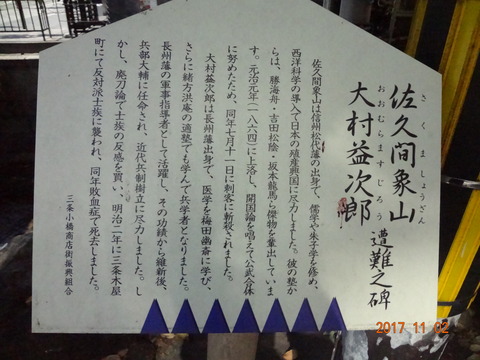 さくましょうざん
佐久間象山
おおむらますじろう
大村益次郎
遭難之碑
佐久間象山は信州松代藩の出身で、儒学や朱子学を修め、
西洋科学の導入で日本の殖産興国に尽力しました。彼の塾か
らは、勝海舟・吉田松陰・坂本龍馬ら傑物を輩出していま
す。元治元年(一八六四)に上洛し、開国論を唱えて公武合体
に努めたため、同年七月十一日に刺客に斬殺されました。
大村益次郎は長州藩出身で、医学を梅田幽斎に学び、
さらに緒方洪庵の適塾でも学んで兵学者となりました。
長州藩の軍事指導者として活躍し、その功績から維新後、
兵部大輔に任命され、近代兵制樹立に尽力しました。し
かし、廃刀論で士族の反感を買い、明治二年に三条木屋
町にて反対派士族に襲われ、同年敗血症で死去しました。
三条小橋商店街振興組合
2017 11 02